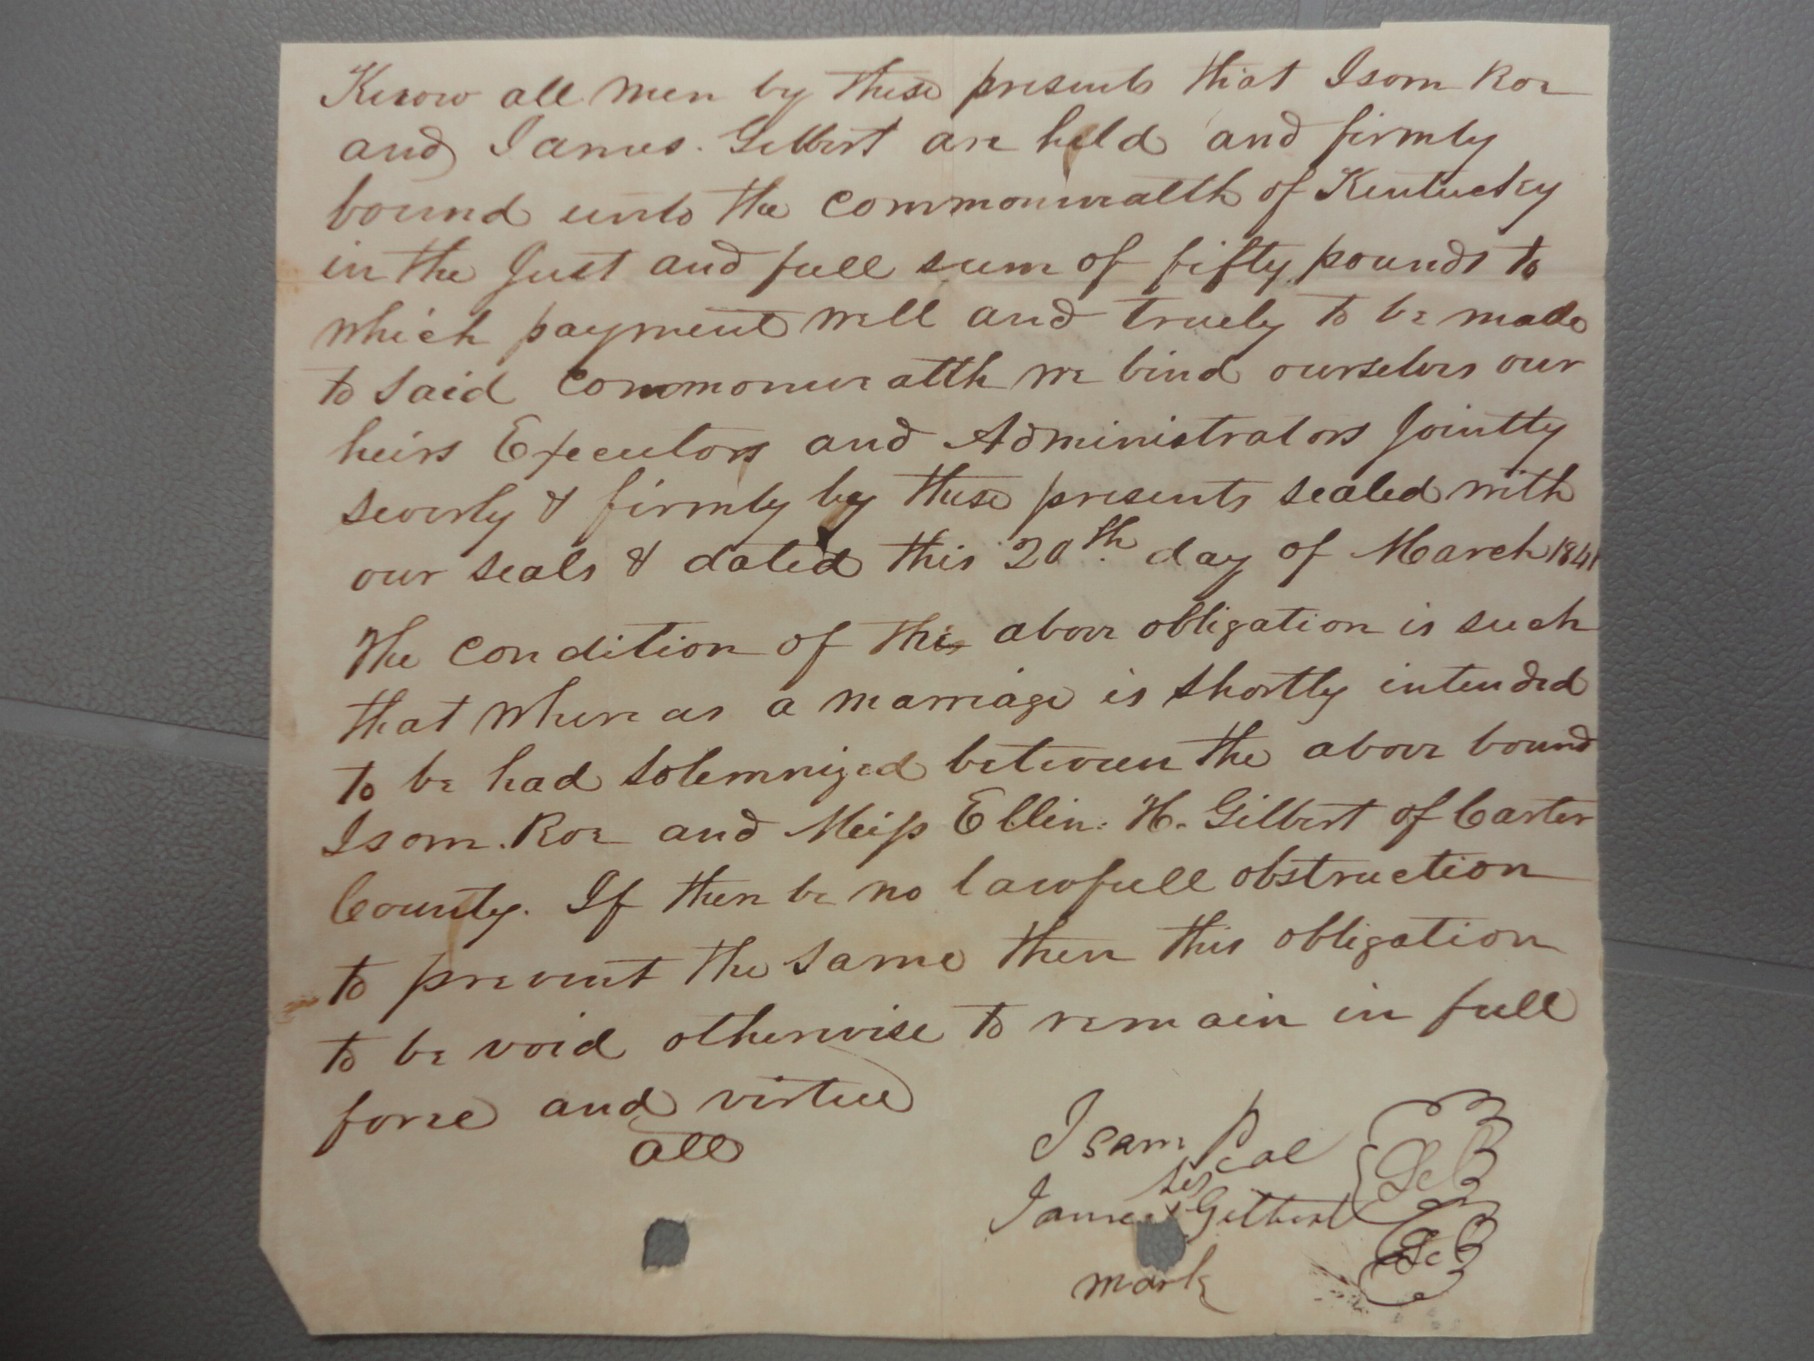 Know all men by these presents that Isom Roe
and James. Gilbert are held and firmly
bound unto the commonwealth of Kentucky
in the Just and full sum of fifty pounds to
which payment well and truely to be made
to said commonwealth we bind ourselves our
heirs Executors and Administrators Jointly
severly & firmly by these presents sealed with
our seals & dated this 20th day of March 1841
The condition of the above obligation is such
that where as a marriage is shortly intended
to be had solemnized between the above bound
Isom. Roe and Miss Ellin. H. Gilbert of Carter
County. If there be no lawfull obstruction
to prevent the same then this obligation
to be void otherwise to remain in full
force and virtue
all
Isam
his
James X Gilbert
mark